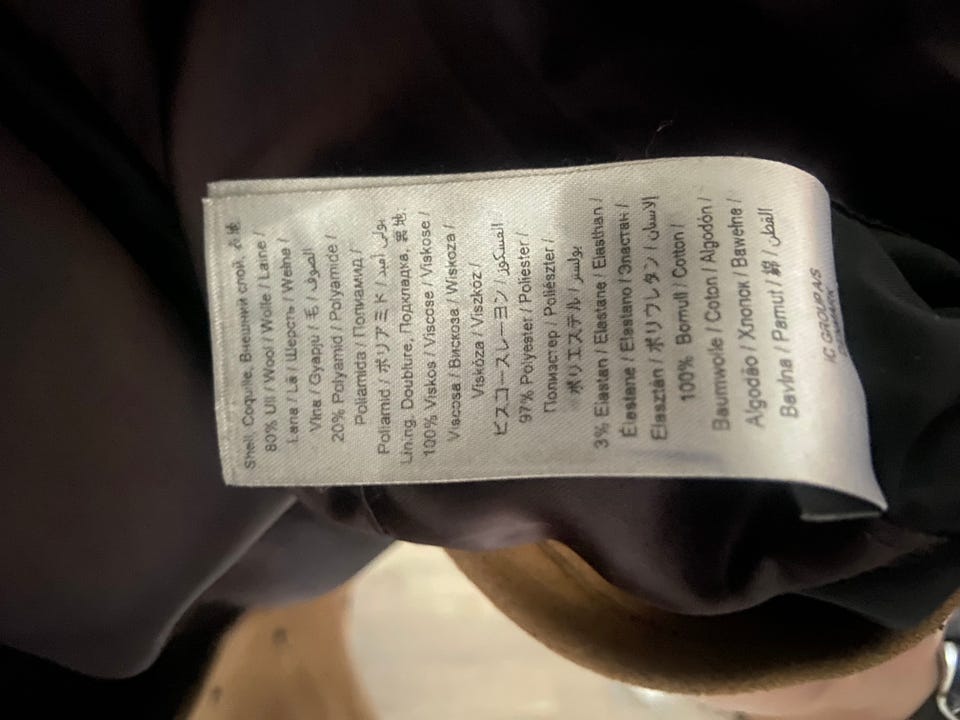 Shell, Coquille, Внешний слой, 表地
80% Ull / Wool / Wolle / Laine /
Lana / Lã / Шерсть / Wełna /
Vlna / Gyapjú / 毛 / الصوف
20% Polyamid / Polyamide /
Poliamida / Полиамид /
Poliamid / ポリアミド / بولي أميد
Lining, Doublure, Подкладка, 裏地:
100% Viskos / Viscose / Viskose /
Viscosa / Вискоза / Wiskoza /
Viskóza / Viszkóz /
ビスコースレーヨン / الفسكوز
97% Polyester / Poliester /
Полиэстер / Poliészter /
ポリエステル / بولستر
3% Elastan / Elastane / Elasthan /
Élastane / Elastano / Эластан /
Elasztán / ポリウレタン / الاستان
100% Bomull / Cotton /
Baumwolle / Coton / Algodón /
Algodão / Хлопок / Bawełna /
Bavlna / Pamut / 綿 / القطن
IC GROUP A/S